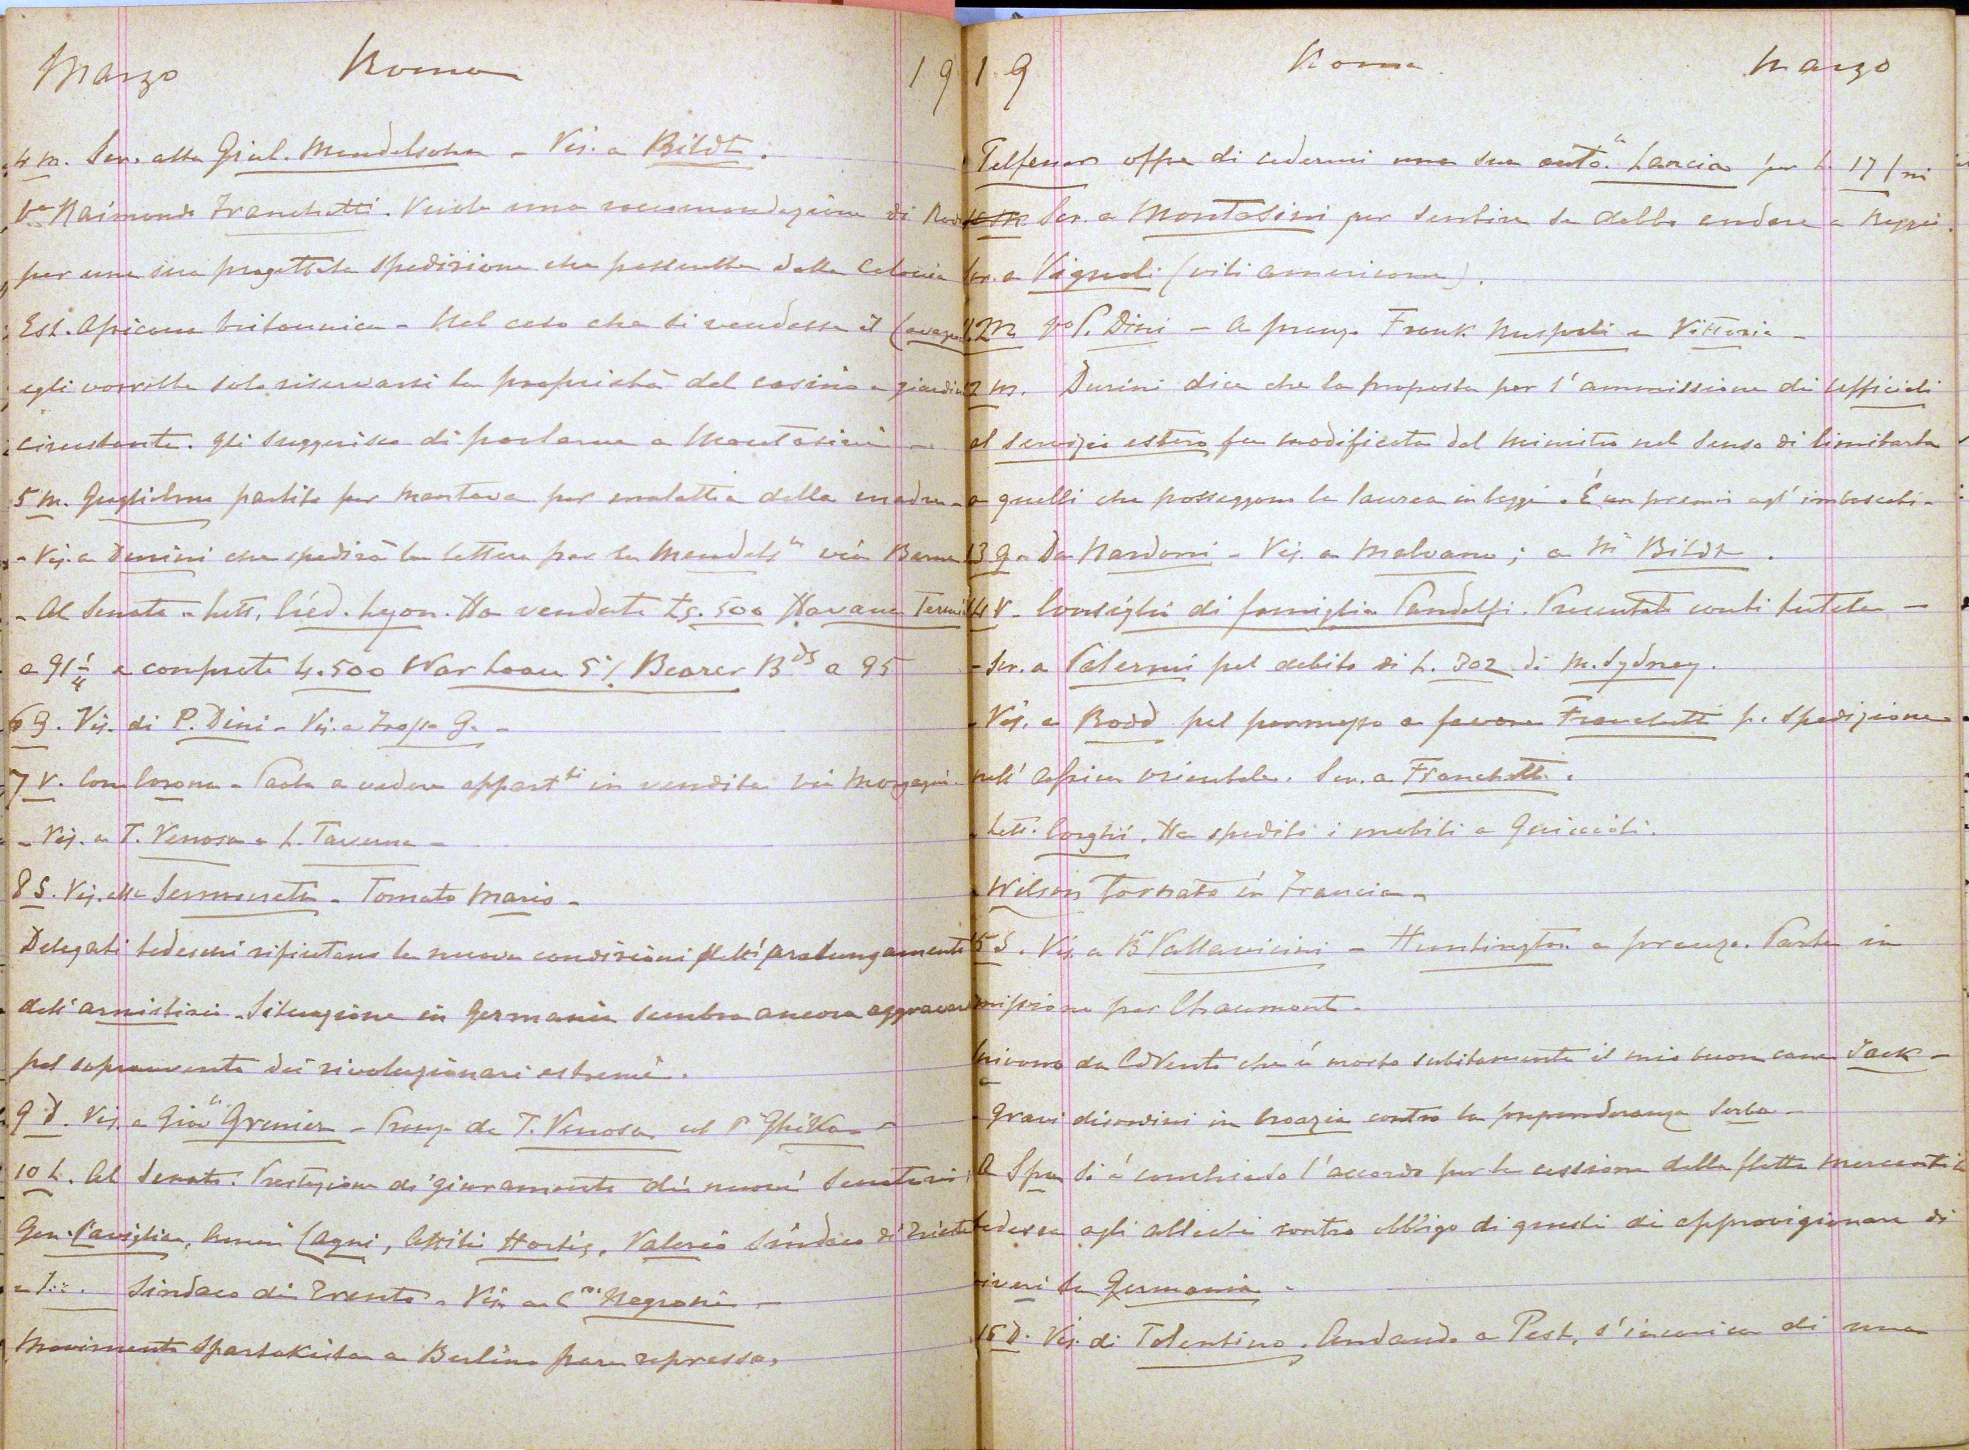 Marzo Roma 19
4 m. Scr. alla Giul. Mendelsohn - Vis. a Bildt.
Raimondo Franchetti. Vuole una raccomandazione di Rodd
per una sua progettata spedizione che passerebbe dalla Colonia
Est. Africana britannica - Nel caso che si vendesse il Cavazz
egli vorrebbe solo riservarsi la proprietà del casino e giardino
circostante. Gli suggerisco di parlarne a Montasini -
5 m. Guglielmo partito per Mantova per malattia della madre -
- Vis. a Durini che spedirà la lettera per la Mendels.n via Berna
- Al Senato - Lett. Créd. Lyon. Ha venduto Ls. 500 Havana Term
a 91 1/4 e comprato 4.500 War Loan 5% Bearer Bds a 95
6 g. Vis. di P. Dini - Vis. a G. -
7 v. Con Corona - Paola a vedere appartti in vendita via Morgagni -
- Vis. a T. Venosa e L. Taverna -
8 s. Vis. alla Sermoneta - Tornato Mario -
Delegati tedeschi rifiutano le nuove condizioni del prolungamento
dell'armistizio - Situazione in Germania sembra ancora aggravarsi
pel sopravvento dei rivoluzionari estremi.
9 D. Vis. a Giov.li Grenier - Pranzo da T. Venosa col P. Ghika -
10 L. Al Senato. Prestazione di giuramento di nuovi Senatori;
Gen. Caviglia, Amm. Cagni, Attilio Hortis, Valerio Sindaco di Trieste
e I... Sindaco di Trento - Vis. a Negroni -
Movimento Spartakista a Berlino pare represso.
19 Roma Marzo
Telfener offre di cedermi una sua auto. Lancia per L. 17/m
Scr. a Montasini per sentire se debbo andare a Reggio.
Scr. a Vignoli (viti americane).
P. Dini - A pranzo Frank Ruspoli e Vittoria -
12 m. Durini dice che la proposta per l'ammissione di ufficiali
al servizio estero fu modificata dal ministro nel senso di limitarla
a quelli che posseggono la laurea in leggi. È un premio agl'imboscati -
13 g. Da Nardoni - Vis. a Malvano; a Mr Bildt.
14 v. Consiglio di famiglia Pandolfi. Presentati conti tutela -
- Scr. a Palermi pel debito di L. 302 di M. Sydney.
- Vis. a Rodd pel permesso a favore Franchetti p. spedizione
nell'Africa orientale. Scr. a Franchetti.
- Lett. Corghi. Ha spedito i mobili a Guiccioli.
- Wilson tornato in Francia -
15 S. Vis. a Pallavicini - Huntington a pranzo. Parte in
missione per Chaumont -
Scrivono da Cavento che è morto subitamente il mio buon cane Jack -
- Gravi disordini in Croazia contro la preponderanza serba -
A Spa si è conchiuso l'accordo per la cessione della flotta mercantile
tedesca agli alleati contro obbligo di questi di approvigionare di
viveri la Germania -
16 D. Vis. di Tolentino. Andando a Pest, s'incarica di una